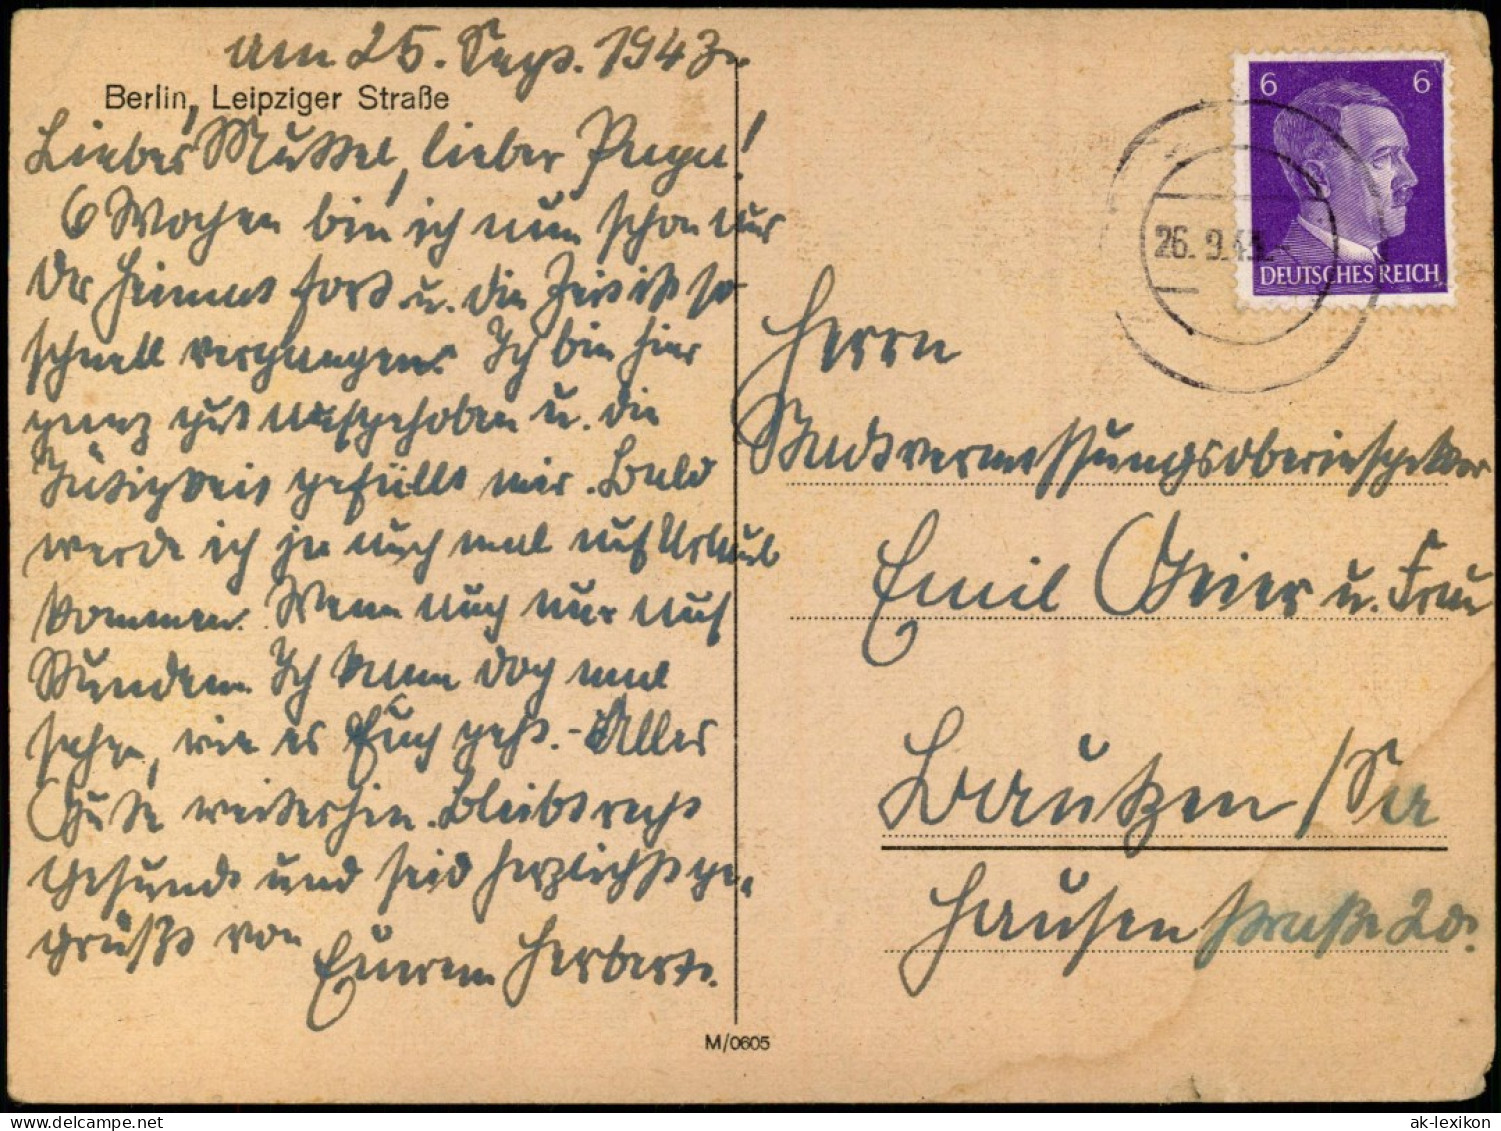 am 25. Sept. 1943.
Berlin, Leipziger Straße
Liebes Muttel, lieber Papa!
6 Wochen bin ich nun schon aus
der Heimat fort u. die Zeit ist so
schnell vergangen. Ich bin hier
ganz gut aufgehoben u. die
Tätigkeit gefällt mir. Bald
werde ich ja auch mal auf Urlaub
kommen. Wenn auch nur auf
Stunden. Ich kann doch mal
sehen, wie es Euch geht. - Alles
Gute weiterhin. Bleibt recht
gesund und seid herzlichst ge-
grüßt von
Eurem Herbert.
M/0605
6 6
DEUTSCHES REICH
26. 9. 43
Herrn
Stadtvermessungsoberinspektor
Emil Geier u. Frau
Bautzen / Sa
Hausenstraße 20.
ak-lexikon